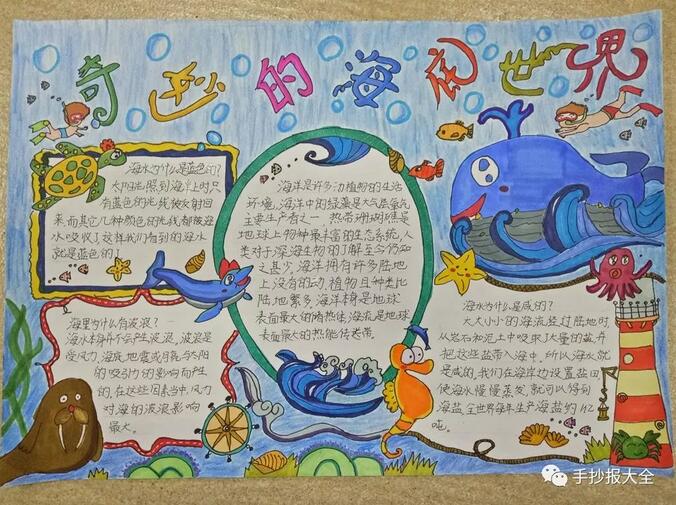 奇妙的海底世界
海水为什么是蓝色的?
太阳光照到海洋上时,只
有蓝色的光线被反射回
来,而其它几种颜色的光线都被海
水吸收了,这样我们看到的海水
就是蓝色的。
海里为什么有波浪?
海水本身并不会产生波浪,波浪是
受风力,海底地震或月亮与太阳
的吸引力的影响而产
生的,在这些因素当中,风力
对海的波浪影响
最大。
海洋是许多动植物的生活
环境,海洋中的绿藻是大气层氧气
主要生产者之一,热带珊瑚礁是
地球上物种最丰富的生态系统,人
类对于深海生物的了解至今仍知
之甚少,海洋拥有许多陆地
上没有的动、植物,且种类比
陆地繁多,海洋本身是地球
表面最大的储热体,海流是地球
表面最大的热能传送带。
海水为什么是咸的?
大大小小的海流经过陆地时,
从岩石和泥土中吸取了大量的盐,并
把这些盐带入海中,所以海水就
是咸的,我们在海岸边设置盐田,
使海水慢慢蒸发,就可以得到
海盐,全世界每年生产海盐约 亿
吨。
手抄报大全